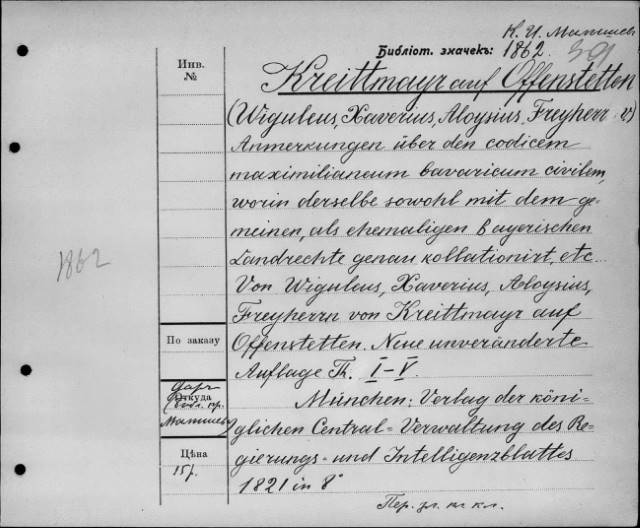 К. И. Малышев
Библіот. значекъ: 1862. 391
Инв.
№
Kreittmayr auf Offenstetten
(Wiguleus, Xaverius, Aloysius, Freyherr v)
Anmerkungen über den codicem
maximilianeum bavaricum civilem,
worin derselbe sowohl mit dem ge-
meinen, als ehemaligen Bayerischen
Landrechte genau kollationirt, etc.
Von Wiguleus, Xaverius, Aloysius,
Freyherrn von Kreittmayr auf
Offenstetten. Neue unveränderte
Auflage Th. I–V.
München: Verlag der köni-
glichen Central-Verwaltung des Re-
gierungs- und Intelligenzblattes
1821 in 8°
1862
По заказу
Даръ
Откуда
Малышев
Цѣна
15 р.
Пер. зл. т кл.